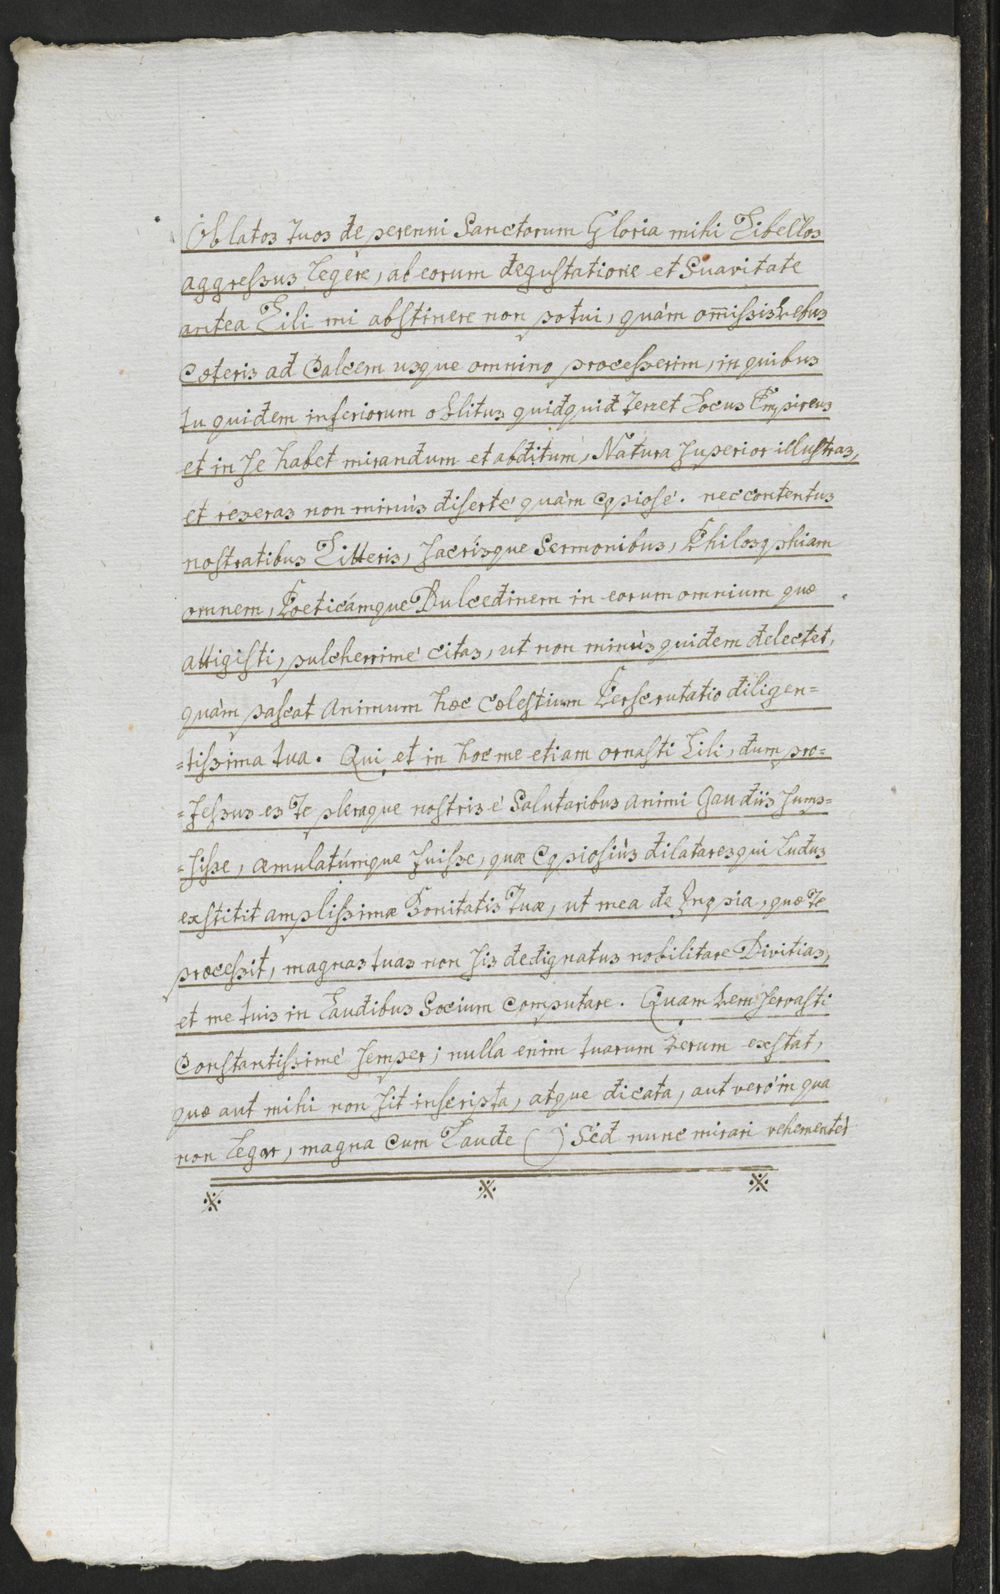 Oblatos tuos de perenni Sanctorum Gloria mihi Libellos
aggressus legere, ab eorum degustatione et Suavitate
antea Lili mi abstinere non potui, quàm omissis rebus
Cæteris ad Calcem usque omnino processerim, in quibus
tu quidem inferiorum oblitus quidquid terret Locus Empireus
et in se habet mirandum et abditum, Natura superior illustras,
et reseras non minùs disertè quàm Copiosè. nec contentus
nostratibus Litteris, sacrisque Sermonibus, Philosophiam
omnem, Poeticámque Dulcedinem in eorum omnium quæ
attigisti, pulcherrimè citas, ut non minùs quidem delectet,
quàm pascat Animum hæc Cœlestium Perscrutatio diligen=
=tissima tua. Qui et in hoc me etiam ornasti Lili, dum pro=
=fessus es Te pleraque nostris è Salutaribus Animi Gaudiis sump=
=sisse, æmulatúmque fuisse, quæ Copiosiùs dilatares qui Ludus
exstitit amplissimæ Bonitatis Tuæ, ut mea de Inopia, quæ Te
præcessit, magnas tuas non sis dedignatus nobilitare Divitias,
et me tuis in Laudibus Socium Computare. Quam rem servasti
Constantissimè semper; nulla enim tuarum rerum exstat,
quæ aut mihi non sit inscripta, atque dicata, aut verò in qua
non legar, magna Cum Laude () Sed nunc mirari vehementer